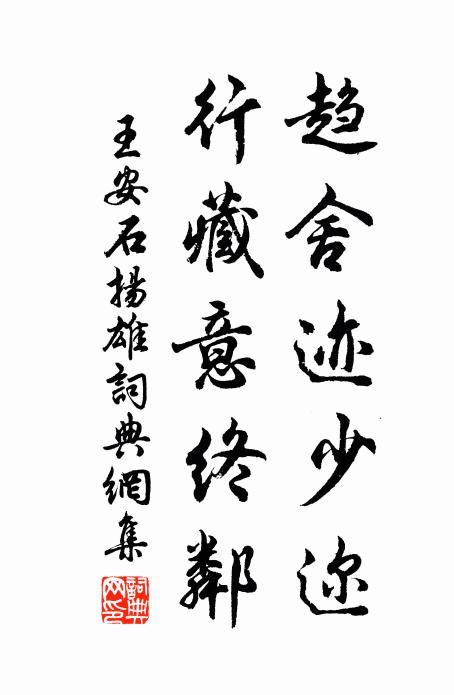 趋舍迹少迩
行藏意終鄰
王安石揚雄詞典網集
詞典
网印